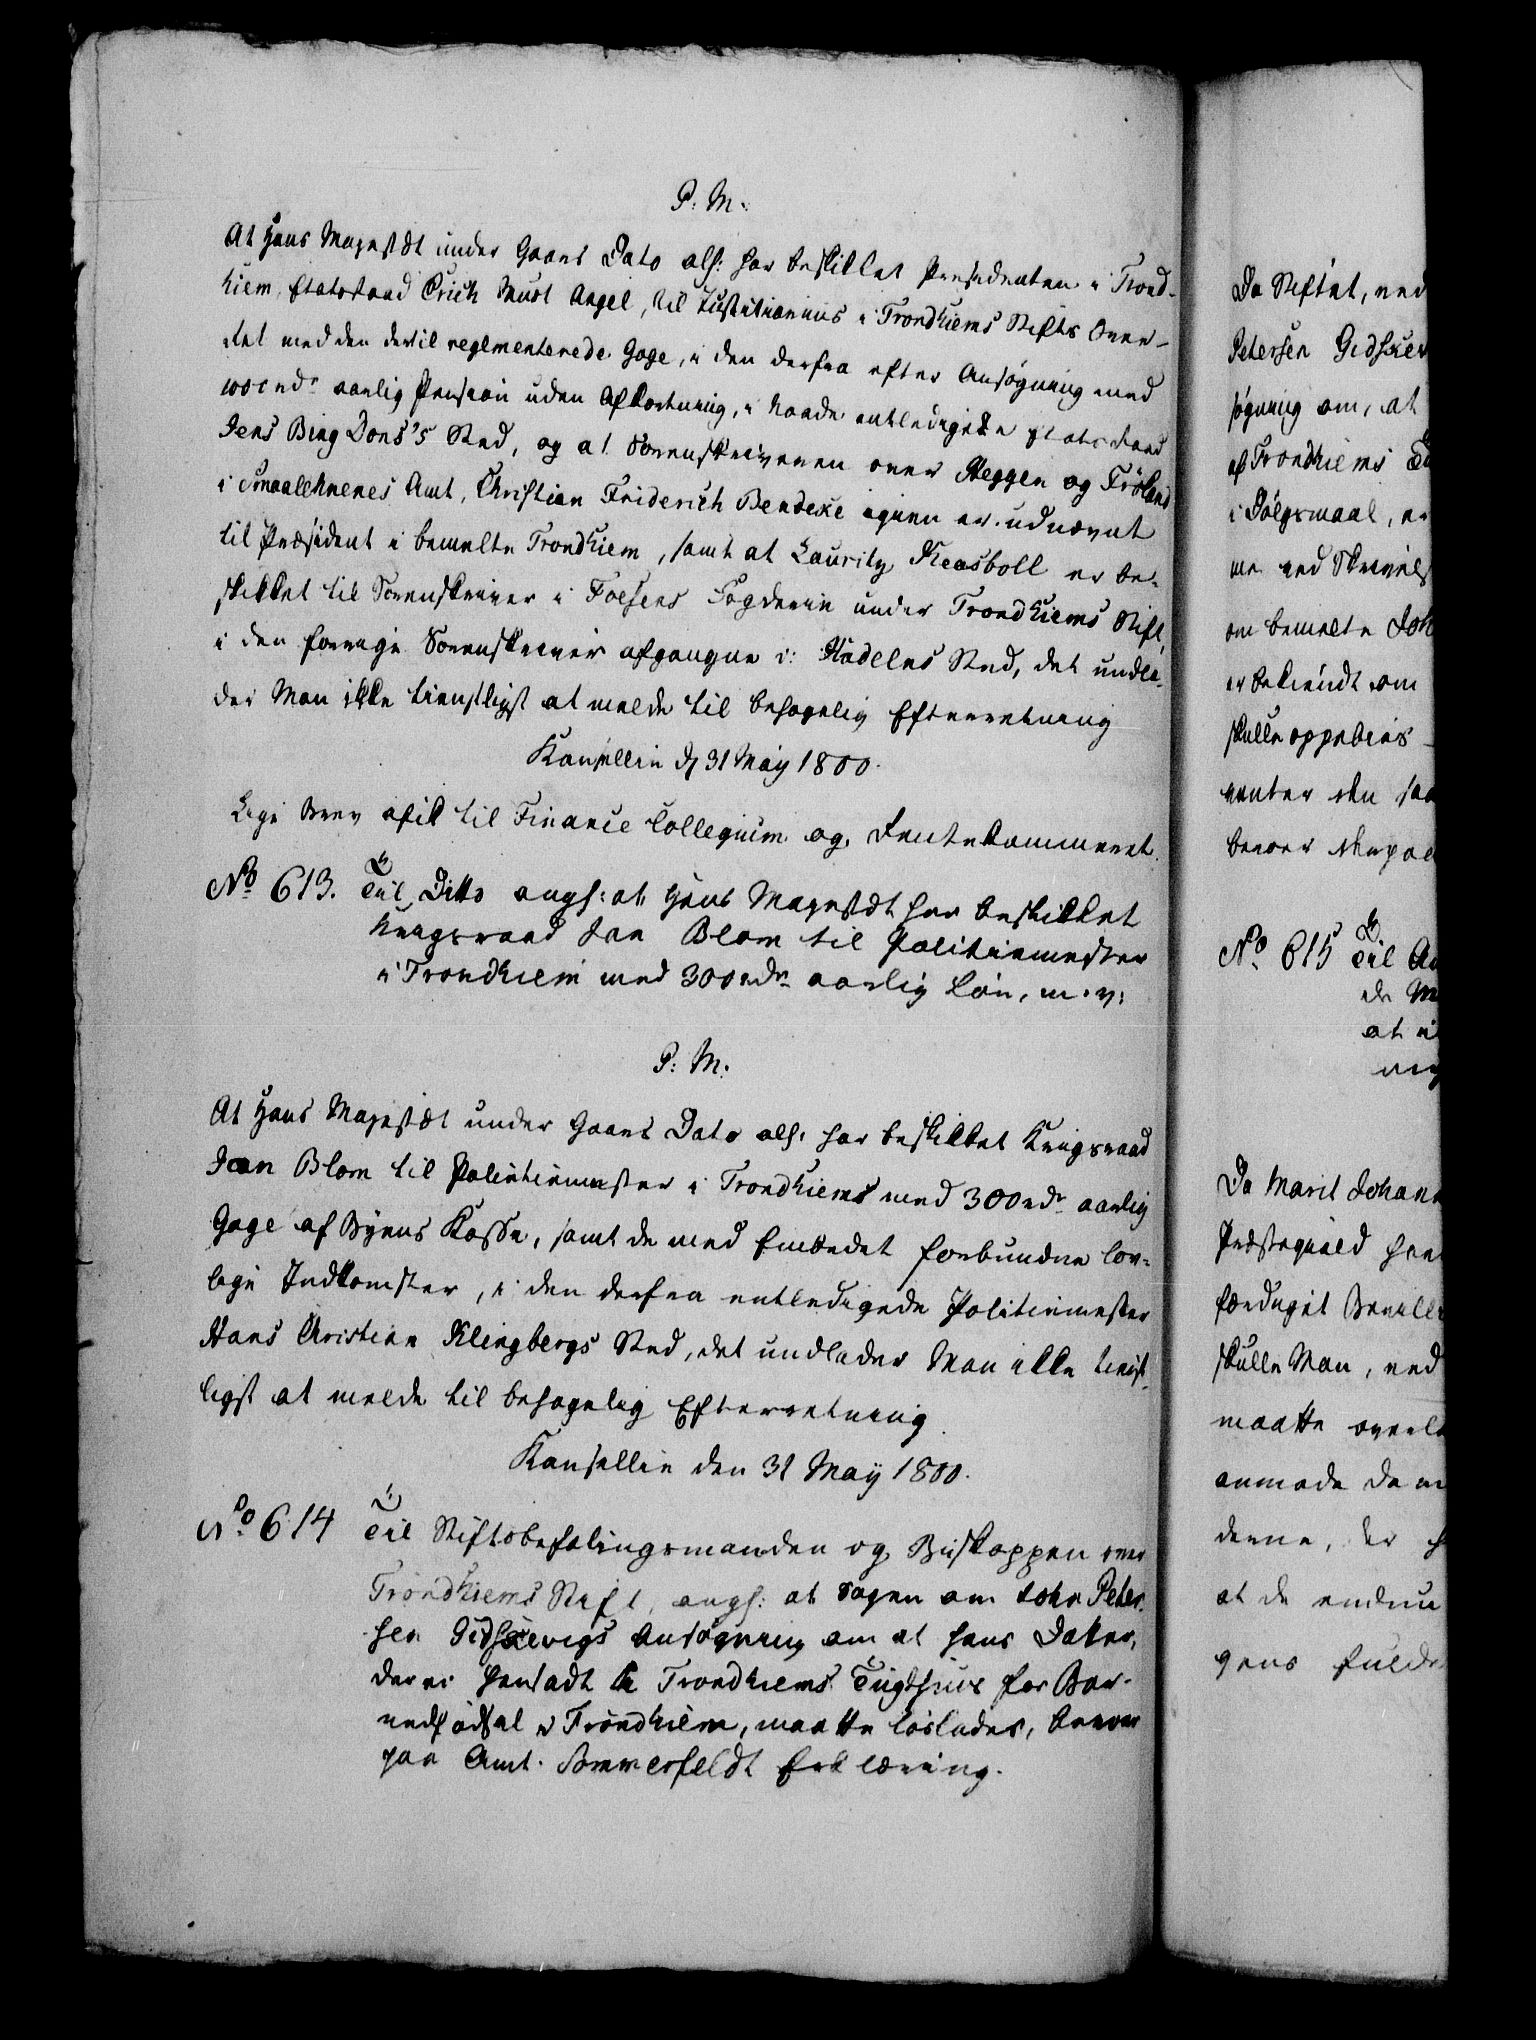 P. M.
At Hans Majestæt under Gaars Dato alf: har beskikket Præsidenten i Trond-
hiem, Etatsraad Erich Must Angel, til Justitiarius i Trondhiems Stifts Over-
ret med den dertil reglementerede Gage, i den derfra efter Ansøgning med
1000 rdr aarlig Pension uden Afkortning, i Naade entledigede Etatsraad
Jens Bing Dons's Sted, og at Sorenskriveren over Heggen og Frøland
i Smaalehnenes Amt, Christian Friderich Bendeke igien er udnævnt
til Præsident i bemelte Trondhiem, samt at Lauritz Keasboll er be-
skikket til Sorenskriver i Foesens Fogderie under Trondhiems Stift,
i den forrige Sorenskriver afgangne Hadelns Sted, det undla-
der Man ikke tienstligst at melde til behagelig Efterretning
Kanselliet d 31 May 1800.
Lige Brev afik til Finance Collegium og Rentekammeret.
No 613. Til Ditto angf: at Hans Majestæt har beskikket
Krigsraad Jan Blom til Politiemester
i Trondhiem med 300 rdr aarlig Løn, m. v:
P. M.
At Hans Majestæt under Gaars Dato alf: har beskikket Krigsraad
Jan Blom til Politiemester i Trondhiems med 300 rdr aarlig
Gage af Byens Kasse, samt de med Embedet forbundne lov-
lige Indkomster, i den derfra entledigede Politiemester
Hans Christian Klingbergs Sted, det undlader Man ikke tienst-
ligst at melde til behagelig Efterretning.
Kanselliet den 31 May 1800.
No 614 Til Stiftsbefalingsmanden og Biskoppen over
Trondhiems Stift, angf: at Sagen om John Peter-
sen Gidskevigs Ansøgning om at hans Datter,
der er hensadt i Trondhiems Tugthuus for Bar-
nefødsel i Trondhiem, maatte løslades, beroer
paa Amt. Sommerfeldt Erklæring.
Da Stiftet, ved
Petersen Gidsker
søgning om, at
af Trondhiems
i Dølgsmaal, er
me ved Skrivels
om bemelte Joh
er bekiendt om
skulle oppebies
venter den saa
beroer derpaa
No 615 Til
de
at
Da Marit Johan
Præstegield
færdiget Bevill
skulle Man, ved
maatte
anmode De
denne, der
at de endnu
gens fulde